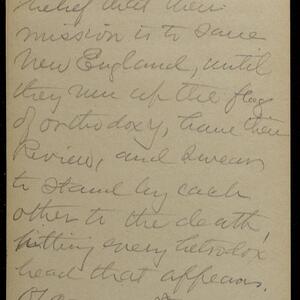 belief that their
mission is to save
New England, until
they run up the flag
of orthodoxy, have their
Review, and swear
to stand by each
other to the death,
hitting every hetrodox
head that appears.